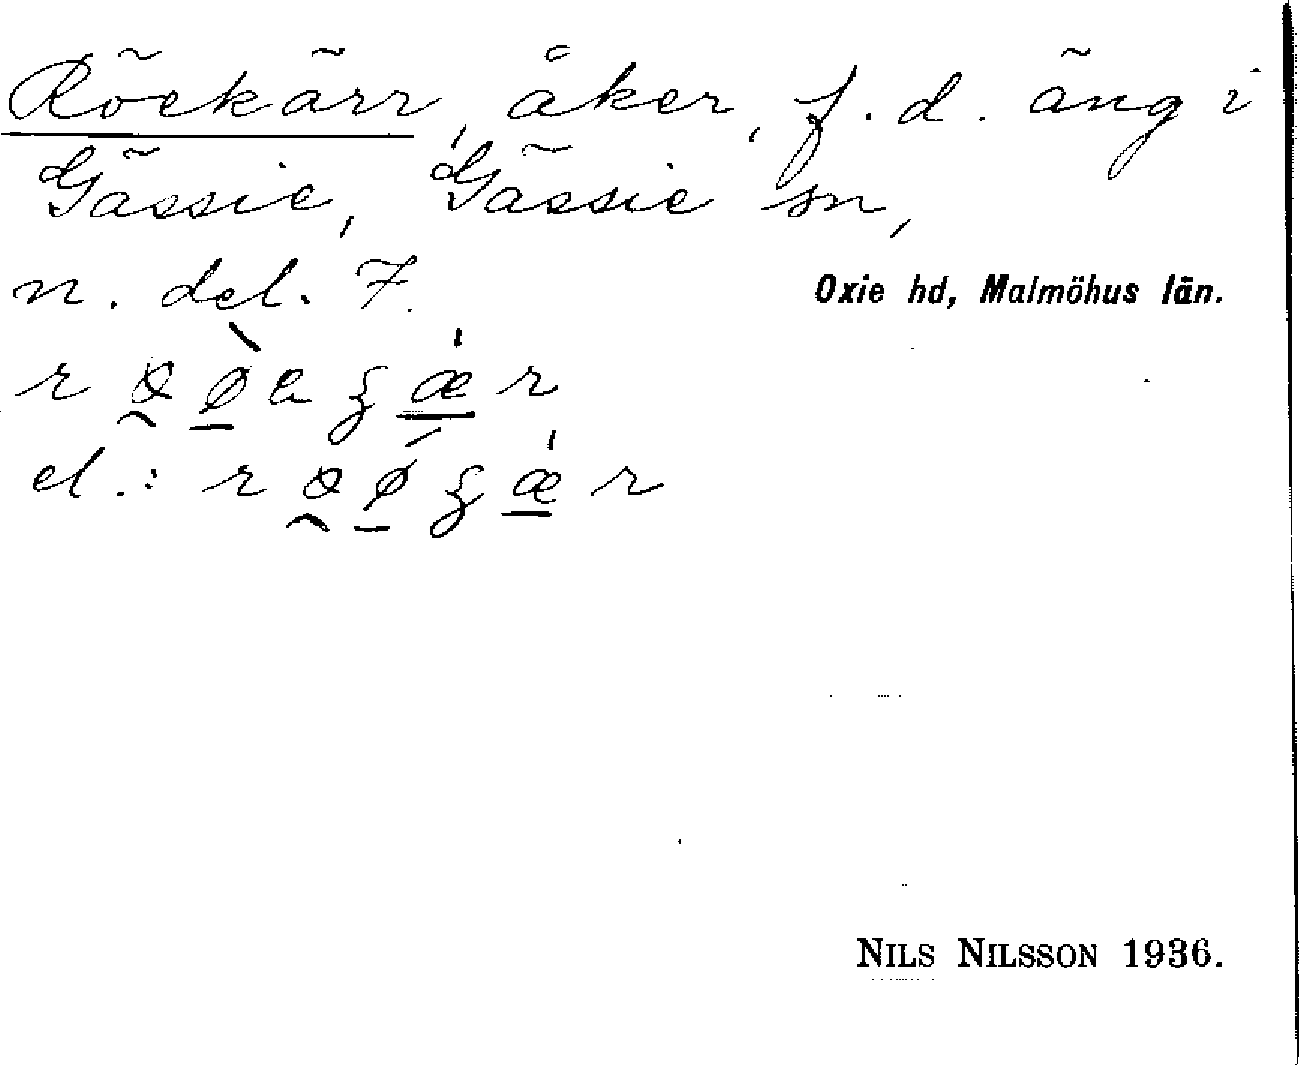 Röekärr, åker, f.d. äng i
Gässie, Gässie sn,
n. del. 7.
Oxie hd, Malmöhus län.
el.:
NILS NILSSON 1936.